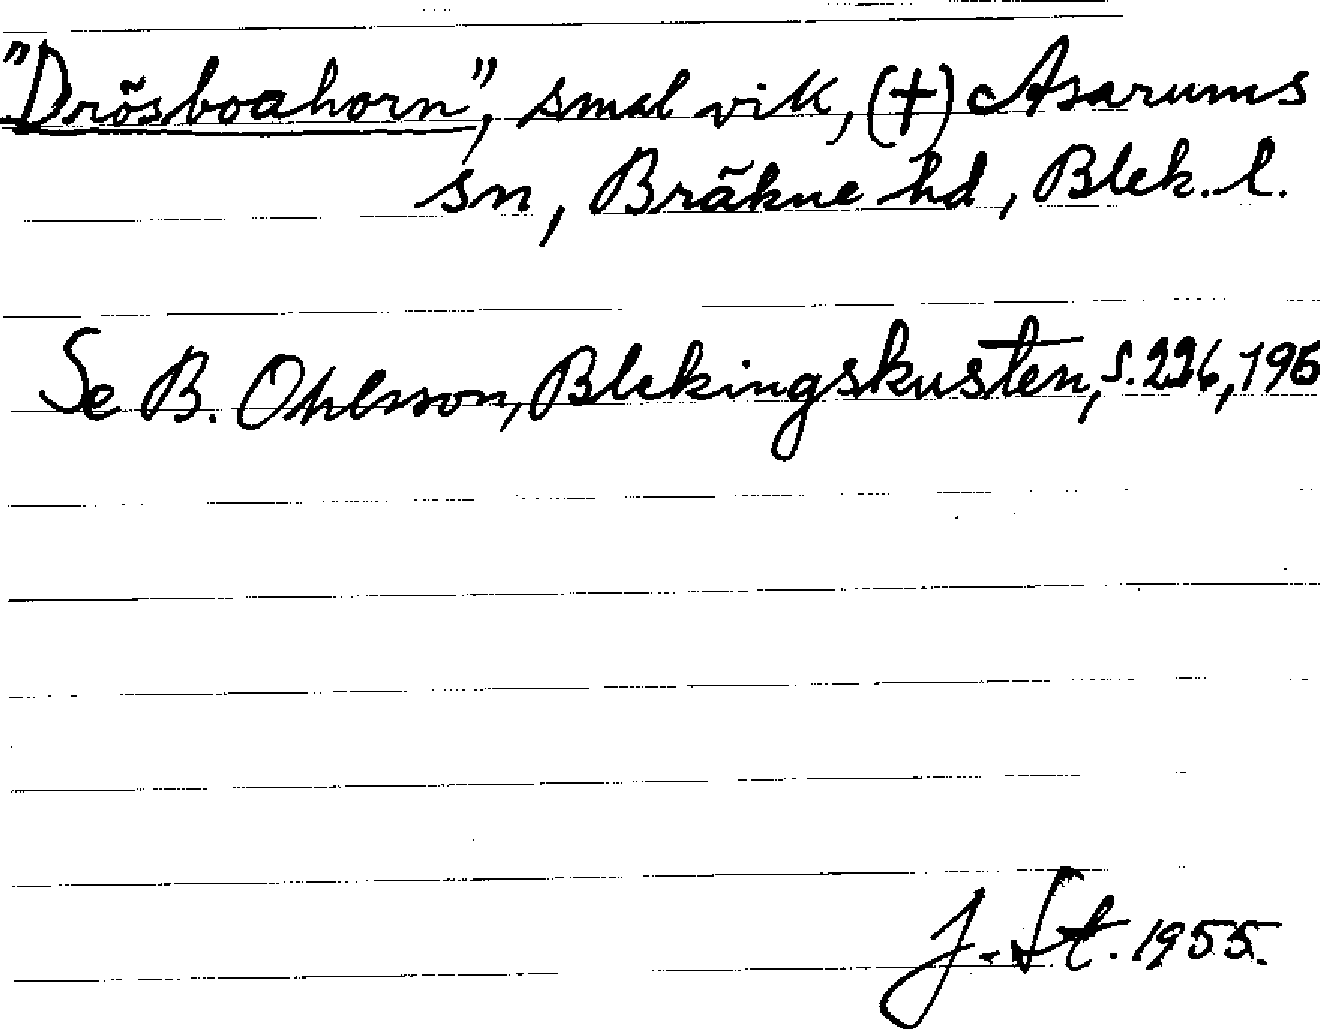 "Drösboahorn", smal vik, (†) Asarums
sn, Bräkne hd, Blek. l.
Se B. Ohlsson, Blekingskusten, s. 226, 196
J. St. 1955.